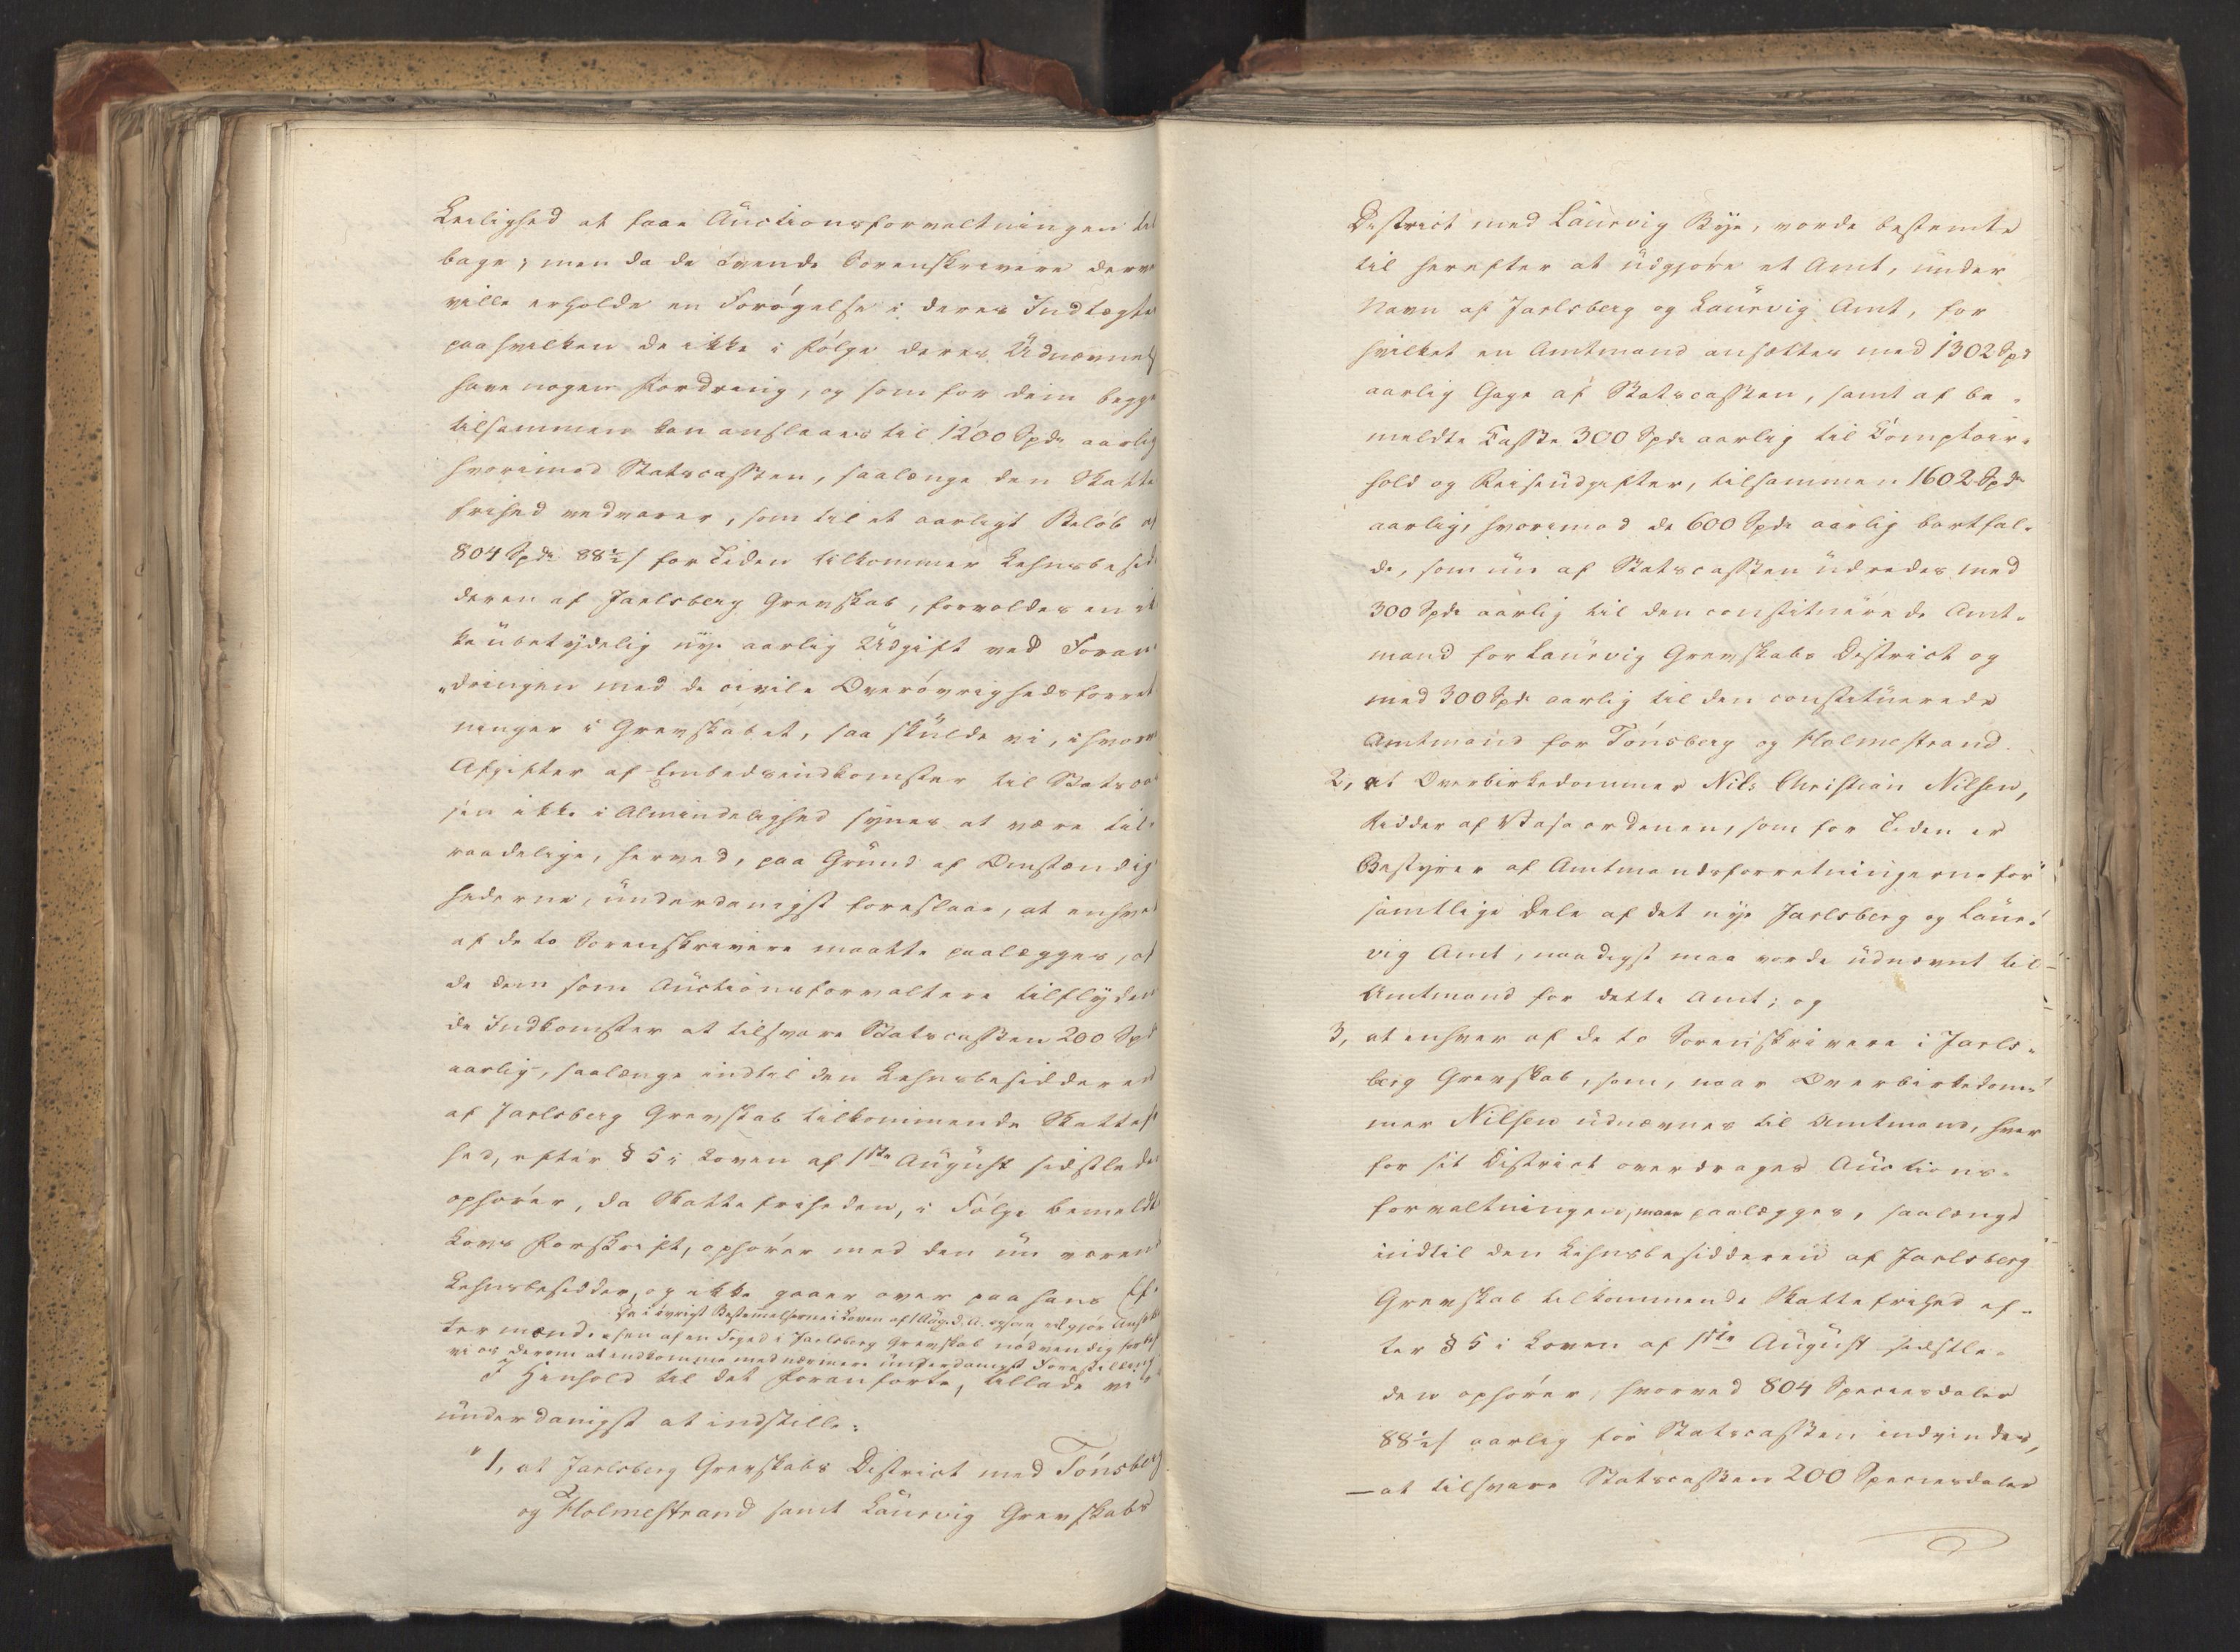 Leilighed at faae Auctionsforvaltningen til
bage; men da de tvende Sorenskrivere derv
ville erholde en Forøgelse i deres Indtægte
paa hvilken de ikke i Følge deres Udnævnels
have nogen Fordring, og som for dem begge
tilsammen kan anslaaes til 1200 Spd. aarlig
hvorimod Statscassen, saalænge den Skatte
frihed vedvarer, som til et aarligt Beløb af
804 Spd. 88½ s for Tiden tilkommer Lehnsbesid
deren af Jarlsberg Grevskab, forvoldes en ik
ke ubetydelig ny aarlig Udgift ved Foran
"dringen med de civile Overøvrighedsforret
ninger i Grevskabet, saa skulde vi, ihvorv
Afgifter af Embedsindkomster til Statscas
sen ikke i Almindelighed synes at være til-
raadelige, herved, paa Grund af Omstændig
hederne, underdanigst foreslaae, at enhver
af de to Sorenskrivere maatte paalægges, af
de dem som Auctionsforvaltere tilflyden
de Indkomster at tilsvare Statscassen 200 Spd
aarlig, saalænge indtil den Lehnsbesidderen
af Jarlsberg Grevskab tilkommende Skattefri
hed, efter § 5 i Loven af 1ste August sidstleden
ophører, da Skattefriheden, i Følge bemeldte
Lovs Forskrift, ophører med den nu værende
Lehnsbesidder, og ikke gaaer over paa hans Ef-
termænd. Da iøvrigt Bestemmelserne i Loven af 1 Aug. d. A. ogsaa udgjør Ansæt
elsen af en Foged i Jarlsberg Grevskab nødvendig forbeh
vi os derom at indkomme med nærmere underdanigst Forestilling
I Henhold til det Foranførte, tillade vi os
underdanigst at indstille:
"1, at Jarlsberg Grevskabs District med Tønsberg
og Holmestrand samt Laurvig Grevskabs
District med Laurvig Bye, vorde bestemte
til herefter at udgjøre et Amt, under
Navn af Jarlsberg og Laurvig Amt, for
hvilket en Amtmand ansættes med 1302 Spd
aarlig Gage af Statscassen, samt af be-
meldte Casse 300 Spd. aarlig til Comptoir-
hold og Reiseudgifter, tilsammen 1602 Spd.
aarlig, hvorimod de 600 Spd. aarlig bortfal-
de, som nu af Statscassen udredes med
300 Spd. aarlig til den constituerede Amt-
mand for Laurvig Grevskabs District og
med 300 Spd. aarlig til den constituerede
Amtmand for Tønsberg og Holmestrand.
2, at Overbirkedommer Nils Christian Nilsen,
Ridder af Vasaordenen, som for Tiden er
Bestyrer af Amtmandsforretningerne for
samtlige Dele af det nye Jarlsberg og Laur-
vig Amt, naadigst maa vorde udnævnt til
Amtmand for dette Amt; og
3, at enhver af de to Sorenskrivere i Jarls-
berg Grevskab, som, naar Overbirkedom-
mer Nilsen udnævnes til Amtmand, hver
for sit District overdrages Auctions-
forvaltningen, maa paalægges, saalænge
indtil den Lehnsbesidderen af Jarlsberg
Grevskab tilkommende Skattefrihed ef-
ter § 5 i Loven af 1ste August sidstle-
den ophører, hvorved 804 Speciesdaler
88½ s aarlig for Statscassen indvindes,
— at tilsvare Statscassen 200 Speciesdaler